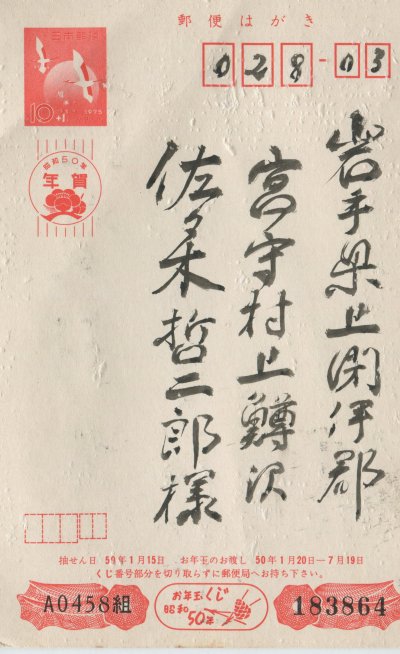 郵便はがき
日本郵便
10+1
1975
028-03
昭和50年
年賀
岩手県上閉伊郡
宮守村上鱒沢
佐々木哲二郎様
抽せん日 50年1月15日 お年玉のお渡し 50年1月20日―7月19日
くじ番号部分を切り取らずに郵便局へお持ち下さい。
A0458組
お年玉くじ
昭和
50年
183864